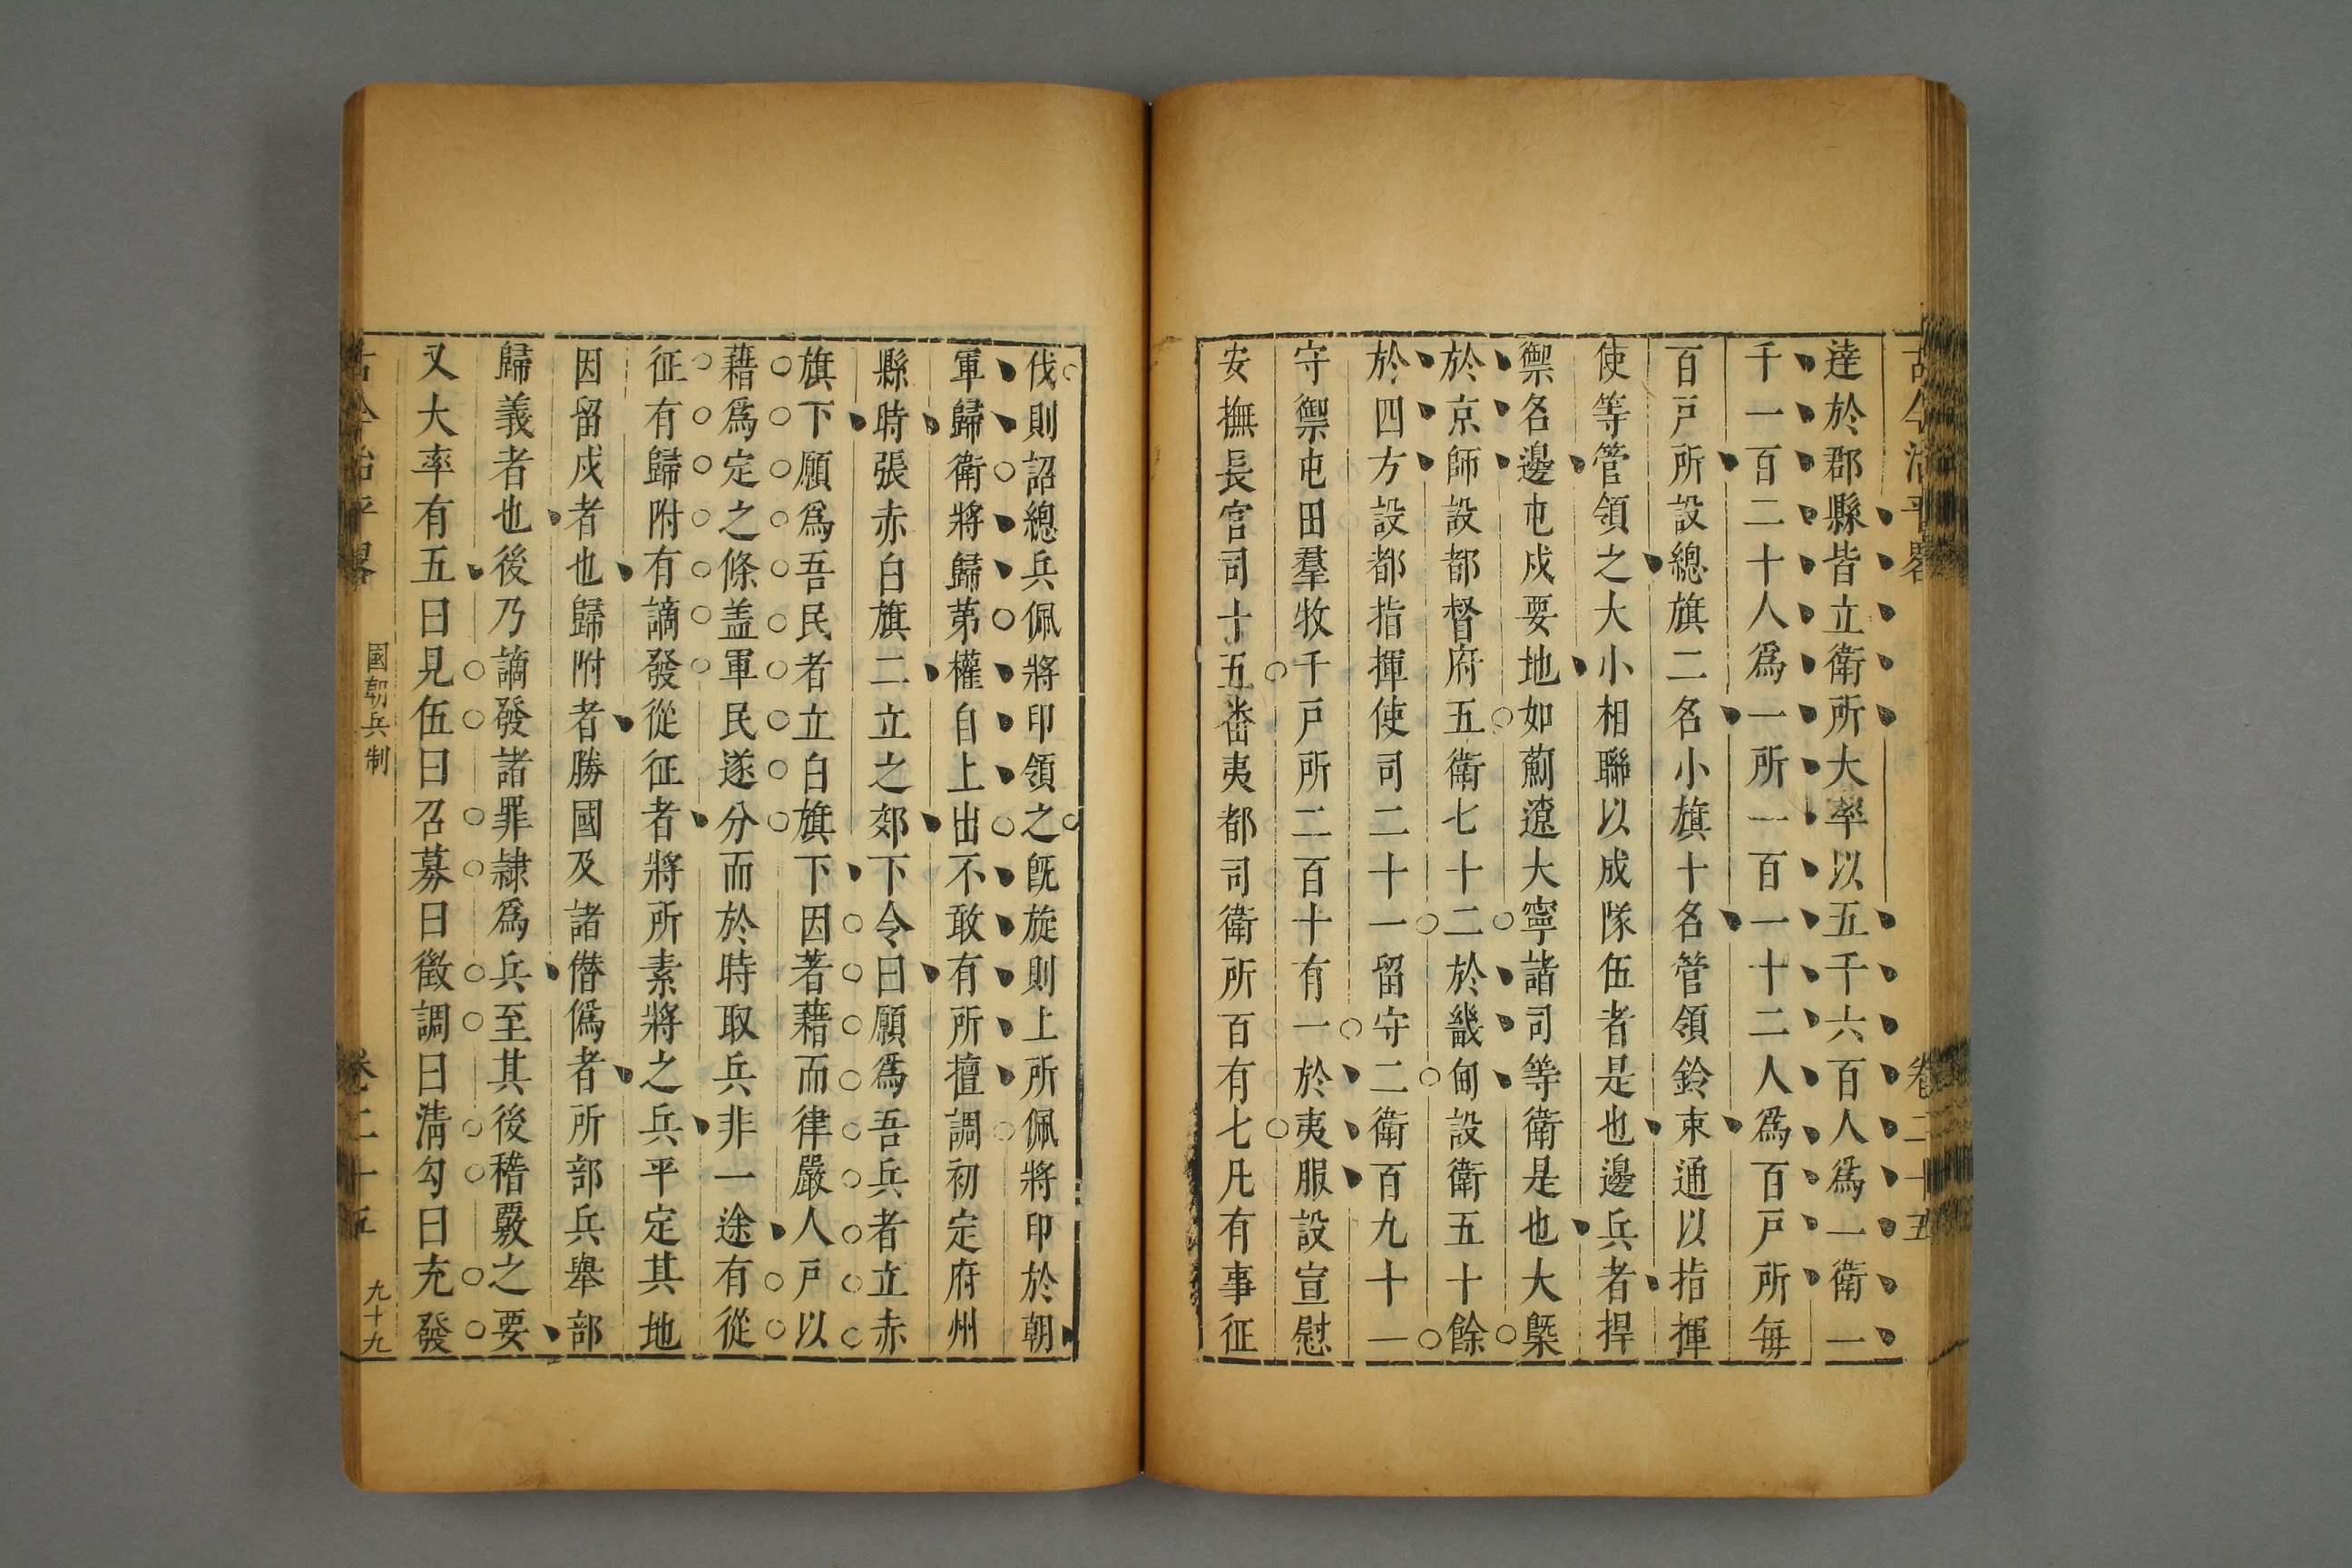 古今治平畧 卷二十五
達於郡縣皆立衛所大率以五千六百人爲一衛一
千一百二十人爲一所一百一十二人爲百戸所每
百戸所設總旗二名小旗十名管領鈐束通以指揮
使等管領之大小相聯以成隊伍者是也邊兵者捍
禦各邊屯戍要地如薊遼大寧諸司等衛是也大槩
於京師設都督府五衛七十二於畿甸設衛五十餘
於四方設都指揮使司二十一留守二衛百九十一
守禦屯田羣牧千戸所二百十有一於夷服設宣慰
安撫長官司十五番夷都司衛所百有七凡有事征
伐則詔總兵佩將印領之旣旋則上所佩將印於朝
軍歸衛將歸第權自上出不敢有所擅調初定府州
縣時張赤白旗二立之郊下令曰願爲吾兵者立赤
旗下願爲吾民者立白旗下因著藉而律嚴人戸以
藉爲定之條盖軍民遂分而於時取兵非一途有從
征有歸附有謫發從征者將所素將之兵平定其地
因留戍者也歸附者勝國及諸僣僞者所部兵舉部
歸義者也後乃謫發諸罪隷爲兵至其後稽覈之要
又大率有五曰見伍曰召募曰徵調曰淸勾曰充發
古今治平畧 國朝兵制 卷二十五 九十九